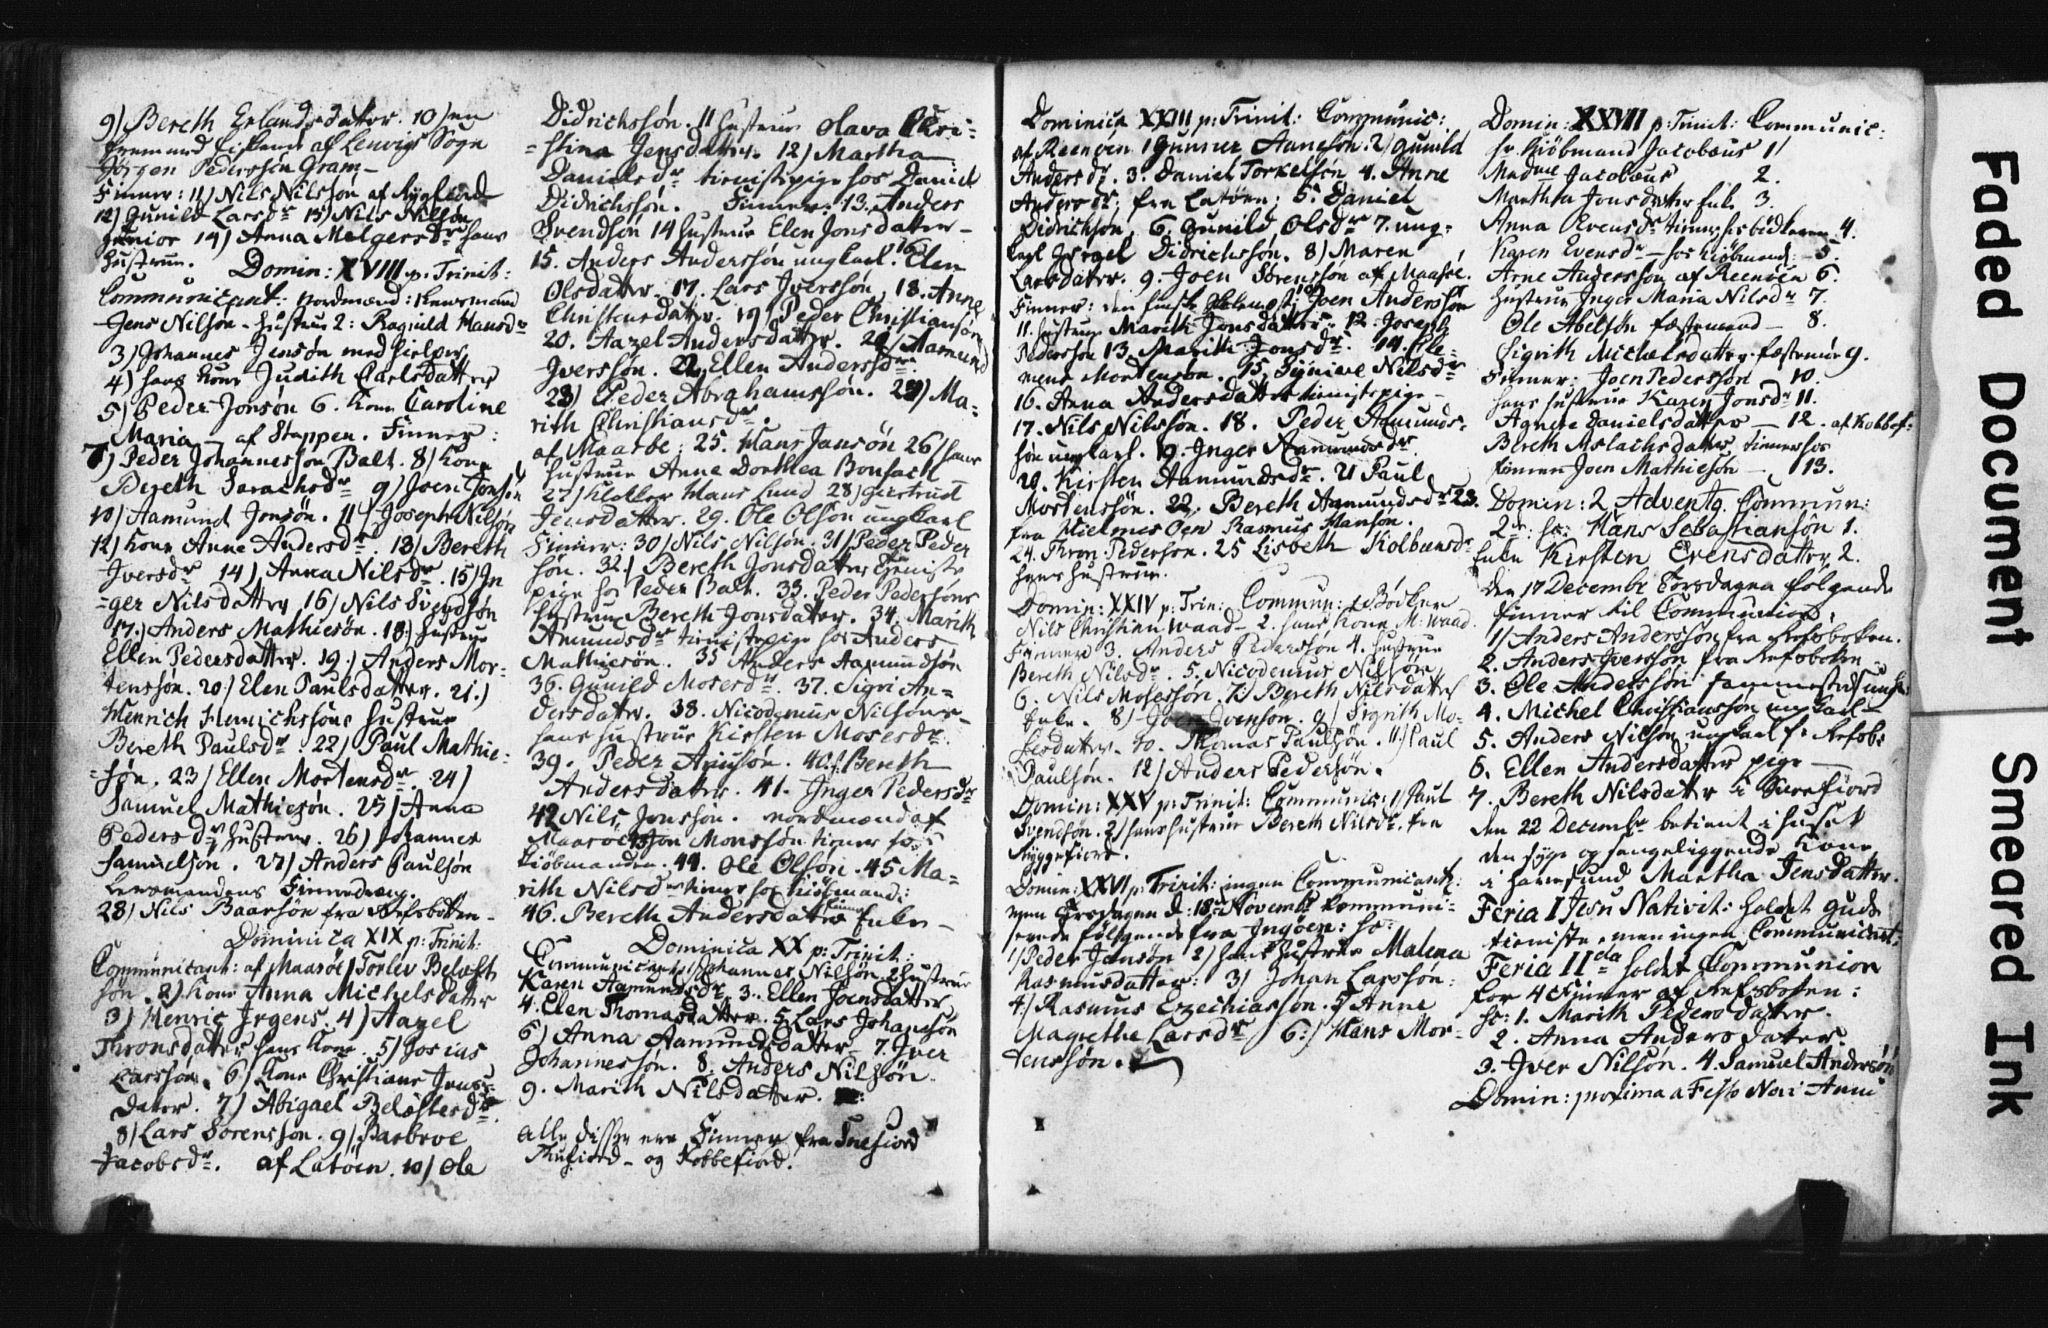 9) Bereth Erlandsdatter. 10) en
fremmed fisker af Lenvigs Sogn
Jörgen Pedersön Gram –
Finner: 11) Nils Nilsson af Rygfiord
12) Gunild Larsdr 13) Nils Nilsön
junior 14) Anna Melgersdr hans
hustrue. Domin: XVIII p: Trinit:
Communicant: nordmænd: 1 Lensmand
Jens Nilsön – hustrue 2: Ragnild Hansdr
3) Johannes Jensön medhielper
4) hans kone Judith Carlsdatter
5) Peder Jonsön 6. kone Caroline
Maria – af Stappen. Finner:
7) Peder Johannesson Balt. 8) kone
Bereth Sarachsdr 9) Joen Jonsön
10) Aamund Jonsön. 11) Joseph Nilsön
12) kone Anne Andersdr. 13) Bereth
Iversdr 14) Anna Nilsdr. 15) In
=ger Nilsdatter 16) Nils Svendsön
17.) Anders Mathiesön. 18.) hustrue
Ellen Pedersdatter. 19.) Anders Mor-
tensson. 20.) Elen Paulsdatter. 21.)
Henrich Henrichssöns hustrue
Bereth Paulsdr 22) Paul Mathie-
=sön. 23) Ellen Mortensdr. 24)
Samuel Mathiesön. 25) Anna
Pedersdr hustrue. 26) Johannes
Samuelson. 27) Anders Paulsön
Lensmandens Finnedreng.
28) Nils Baarsön fra Refsboten –
Dominica XIX p: Trinit:
Communicant: af Maasöe 1) Torlev Belest
sön. 2) kone Anna Michelsdatter
3) Henric Irgens. 4) Aazel
Thronsdatter hans kone. 5) Josias
Larsson. 6) kone Christiane Jens-
dater. 7) Abigael Belestersdr.
8) Lars Sörensson. 9) Barbroe
Jacobsdr. af Latöen. 10) Ole
Didrichssön. 11 hustrue Olava Chri-
=stina Jensdatter. 12) Martha
Danielsdr tienistepige hos Daniel
Didrichsön. Finner: 13. Anders
Svendsön 14 hustrue Elen Jonsdatter –
15. Anders Anderssön ungkarl. 16) Elen
Olsdatter. 17. Lars Iversson. 18. Anne
Christensdatter. 19) Peder Christianson
20. Aazel Andersdatter. 21) Aamund
Iverssön. 22 Ellen Andersdr.
23) Peder Abrahamssön. 24) Ma-
rith Christiansdr.
af Maasöe: 25. Hans Jansön 26) hans
hustrue Anne Dorthea Bonsach
27) Klokker Hans Lund 28) Giertrud
Jensdatter. 29. Ole Olsön ungkarl
Finner: 30) Nils Nilsön. 31) Peder Peder
sön. 32.) Bereth Jonsdatter tieniste
pige hos Peder Balt. 33. Peder Pedersöns
hustrue Bereth Jonsdatter. 34. Marith
Amundsdr tienistepige hos Anders
Mathiesön. 35 Anders Aamundsön
36. Gunild Mosesdr. 37. Sigri An=
dersdatter. 38. Nicodemus Nilsöns –
hans hustrue Kirsten Mosesdr.
39. Peder Arnesön. 40) Bereth
Andersdatter. 41. Inger Pedersdr
42 Nils Jonsson. nordmænd af
Maasöe 43 Jon Monssön tiener hos
Kiöbmanden. 44. Ole Olsön. 45 Ma-
rith Nilsdr tiener hos Kiöbmand:
46. Bereth Andersdatter Finne Enke –
Dominica XX p: Trinit:
Communicant: 1) Johannes Nilsön 2 hustrue
Karen Aamundsdr. 3. Ellen Joensdatter
4. Elen Thomasdatter. 5. Lars Johansön
6) Anna Aamundsdatter 7. Iver
Johannessön. 8. Anders Nilssön.
9. Marith Nilsdatter.
Alle disse ere Finner fra Snefiord
– og Kobbefiord.
Dominica XXIII p: Trinit: Communic:
af Reenöen 1 Gunner Aanesön. 2) Gunild
Andersdr. 3. Daniel Torkelsön 4. Anne
Andersdr: fra Latöen: 5. Daniel
Didrichsön. 6. Gunild Olsdr 7. ung-
karl Jörgel Didrichssön. 8) Maren
Larsdatter. 9. Joen Sörenssön af Maasöe.
Finner: den 10) Joen Anderssön
11. hustrue Marith Jonsdatter. 12. Joseph
Pedersön 13 Marith Jonsdr. 14. Cle-
mens Mortenson. 15. Synneve Nilsdr
16. Anna Andersdatter tienistepige –
17. Nils Nilssön. 18. Peder Aamunds-
sön ungkarl. 19. Inger Aamundsdr
20. Kirsten Aamundsdr. 21 Paul
Mortenssön. 22. Bereth Aamundsdr 23.
fra Hielmesöen Rasmus Hansön.
24. Thron Pederson. 25 Lisbeth Kolbensdr
hans hustrue.
Domin: XXIV p: Trin: Commun: 1 Böcker
Nils Christian Waad – 2. hans kone M: Waad.
Finner 3. Anders Pedersön 4. hustrue
Bereth Nilsdr. 5. Nicodemus Nilsön
6. Nils Mosesson. 7.) Bereth Nilsdatter
Enke. 8) Iver Ivenson. 9) Sigrith Mo-
sesdatter. 10. Thomas Paulsön. 11.) Paul
Paulsön. 12) Anders Pedersön.
Domin: XXV p: Trinit: Communic: 1) Paul
Svendsön. 2) hans hustrue Bereth Nilsdr. fra
Ryggefiord.
Domin: XXVI p: Trinit: ingen Communicant:
men Torsdagen d: 18de Novembr communi-
cerede fölgende fra Ingöen: sc:
1) Peder Jansön 2) hans hustrue Malena
Rasmusdatter: 3) Johan Larssön:
4) Rasmus Ezechiasson. 5 Anne
Magrethe Larsdr 6.) Hans Mor-
tenssön.
Domin: XXVII p: Trinit: Communic:
sc. Kiöbmand Jacobæus 1)
Madme Jacobæus 2.
Martha Jonsdatter Enke 3.
Anna Evensdr tiener hos bödkeren 4.
Karen Evensdr – hos Kiöbmand: 5.
Arne Andersson af Reenöen 6.
hustrue Inger Maria Nilsdr 7.
Ole Abelsön fæstemand – 8.
Sigrith Michelsdatter fæstemöe 9.
Finner: Joen Pederssön 10.
hans hustrue Karen Jonsdr 11.
Agnete Danielsdatter – 12. af Kobbef:
Bereth Aslachsdatter tiener hos
finnen Joen Mathieson – 13.
Domin: 2 Adventq. Commun:
2de: sc: Hans Sebastiansön 1.
Enke Kirsten Evensdatter 2.
Den 17 Decembr Torsdagen fölgende
finner til Communion:
1) Anders Anderssön fra Refsboten.
2. Anders Iverssön fra Refsboten
3. Ole Anderssön sammesteds ungk:
4. Michel Christianssön ungkarl –
5. Anders Nilson ungkarl f: Refsb:
6. Ellen Andersdatter pige –
7. Bereth Nilsdatter i Snefiord
den 22 Decembr betient i huset
den syge og sengeliggende kone
i Havesund Martha Jensdatter.
Feria I Jesu Nativit: holdet Guds
tieniste, men ingen Communicant:
Feria IIda holdet Communion
for 4 Finner af Refsboten:
sc: 1. Marith Peders datter.
2. Anna Anders dater.
3. Iver Nilsön. 4. Samuel Andersön
Domin: proxima a Festo Novi Anni
Faded Document
Smeared Ink